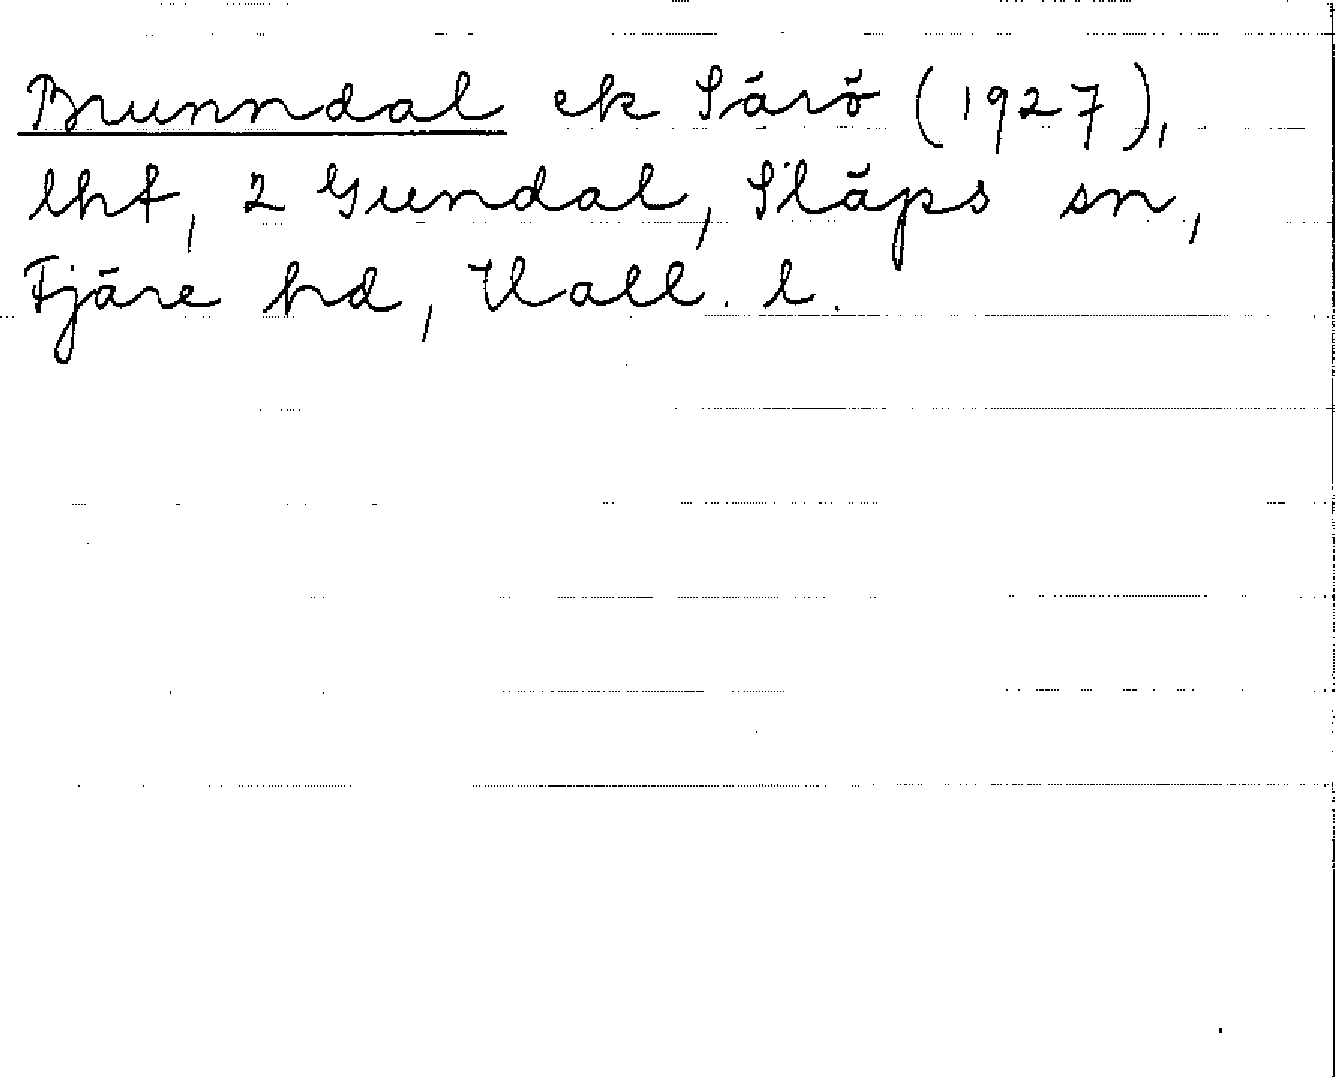 Brunndal ek Särö (1927),
lht, 2 Gundal, Släps sn,
Fjäre hd, Hall. l.